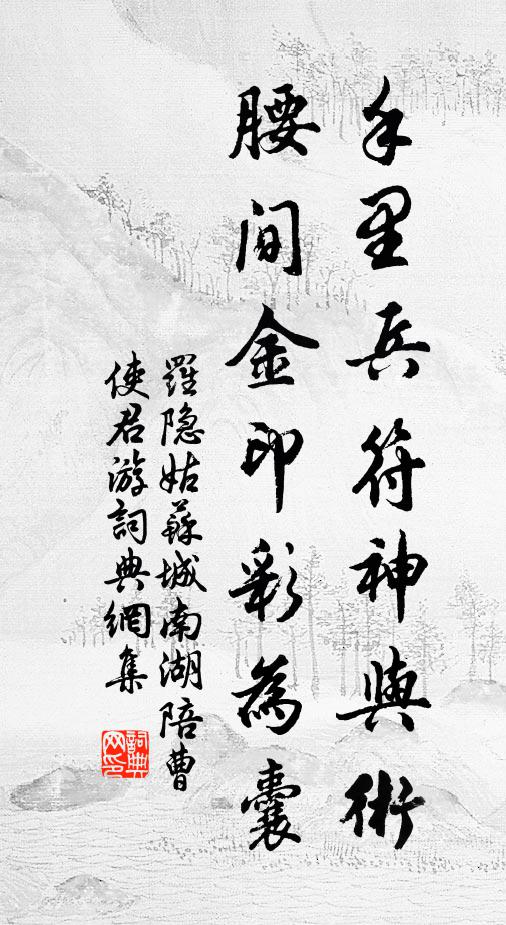 手里兵符神與術
腰间金印彩為囊
羅隐姑蘇城南湖陪曹
使君游詞典網集
詞典网印